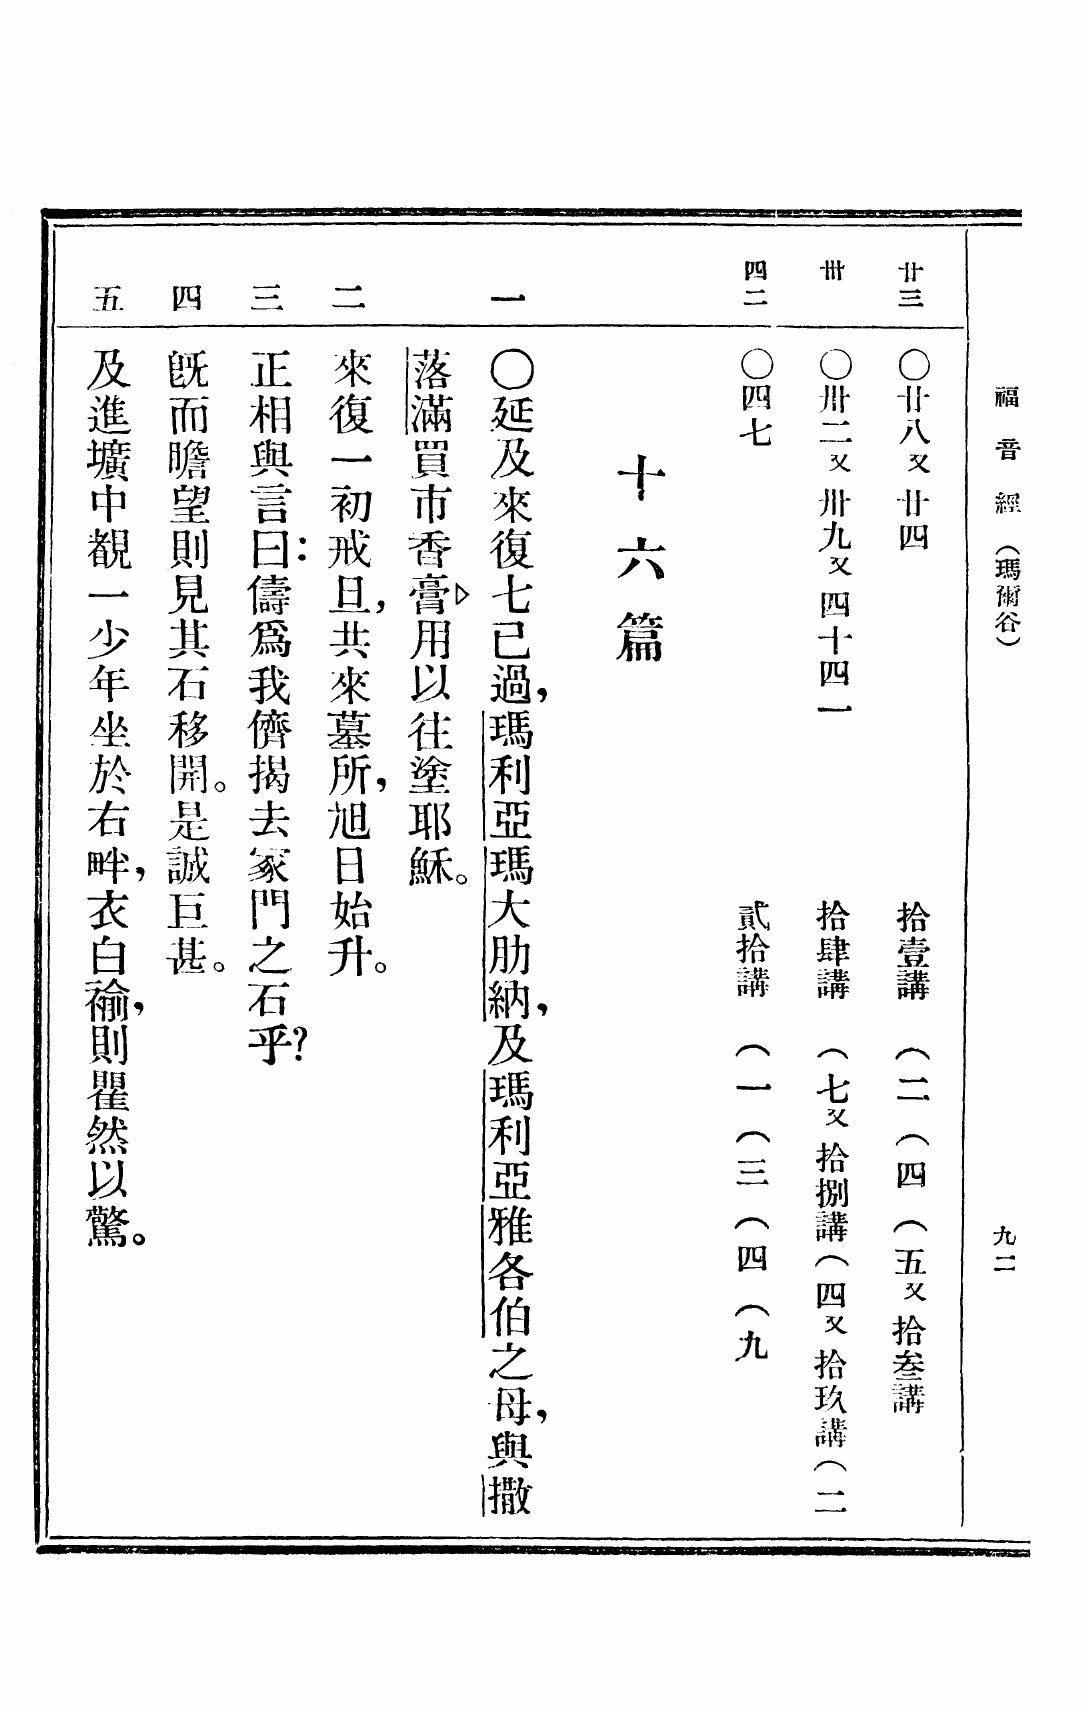 福音經(瑪爾谷)
九二
廿三 〇廿八又廿四 拾壹講(二(四(五又拾叁講
卅 〇卅二又卅九又四十四一 拾肆講(七又拾捌講(四又拾玖講(二
四二 〇四七 貳拾講(一(三(四(九
十六篇
一 〇延及來復七已過,瑪利亞瑪大肋納,及瑪利亞雅各伯之母,與撒
落滿買市香膏▷用以往塗耶穌。
二 來復一初戒旦,共來墓所,旭日始升。
三 正相與言曰:儔爲我儕揭去冢門之石乎?
四 旣而瞻望則見其石移開。是誠巨甚。
五 及進壙中覩一少年坐於右畔,衣白褕,則瞿然以驚。